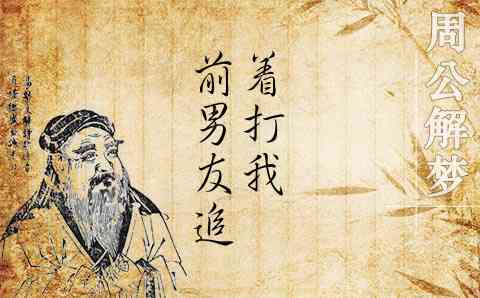 周公解梦
前男友追
着打我